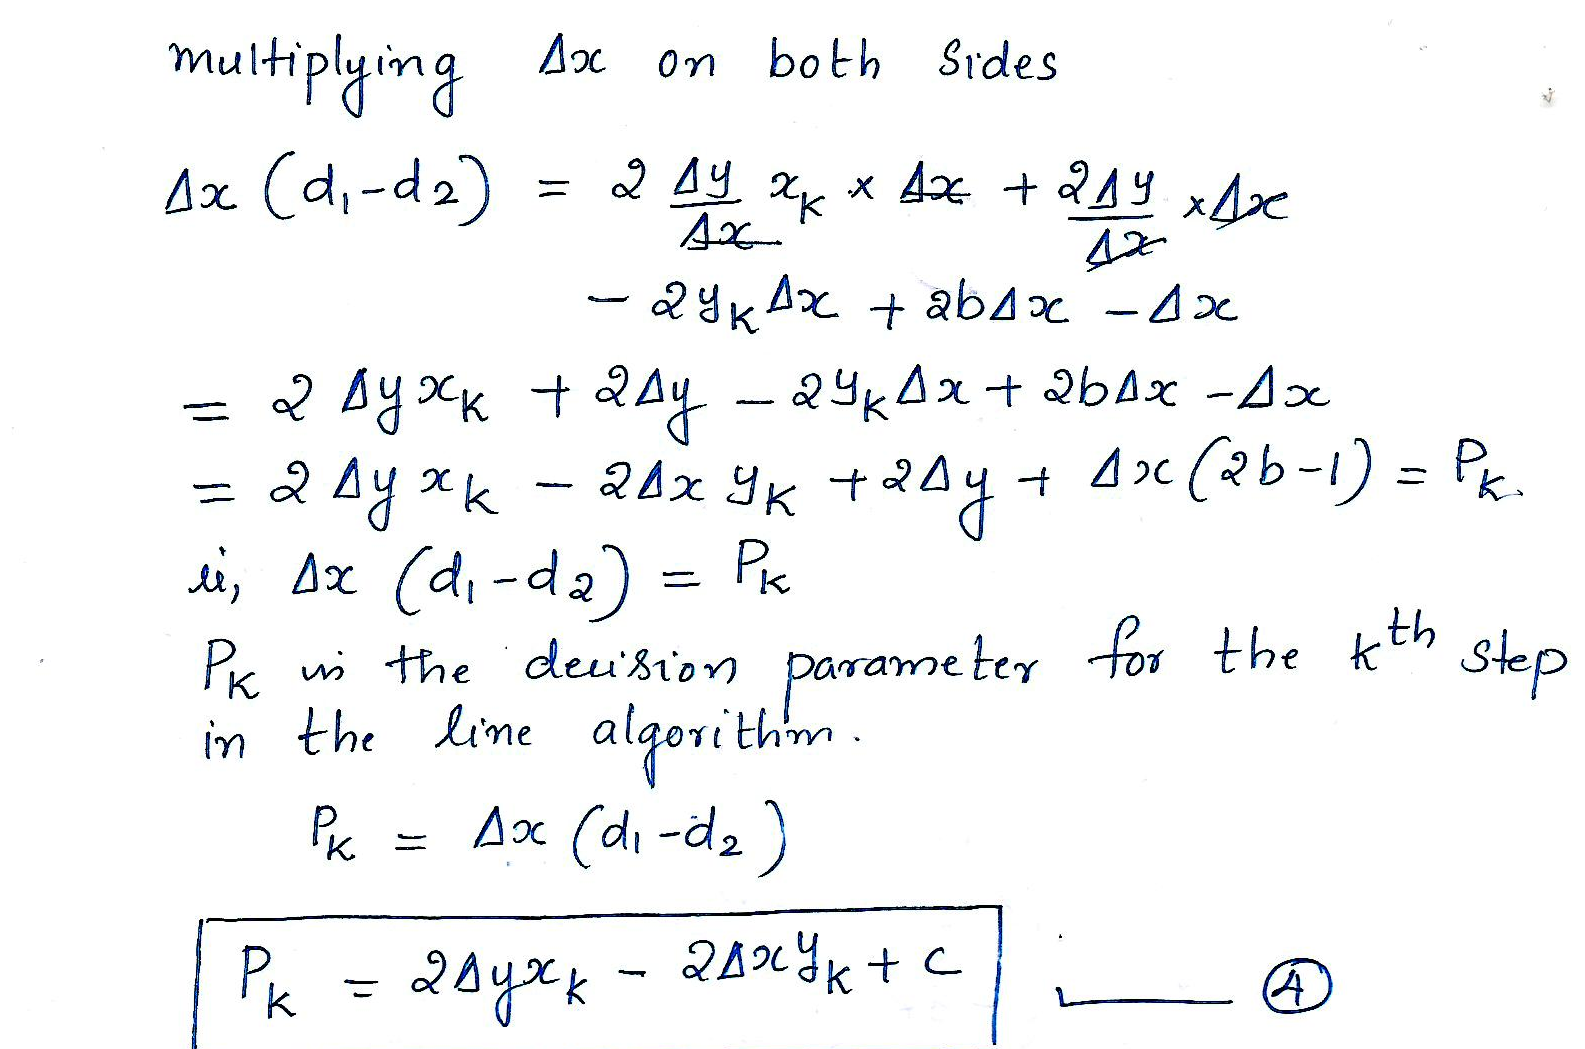 multiplying Δx on both sides
Δx (d₁-d₂) = 2 Δy/Δx xₖ × Δx + 2Δy/Δx ×Δx
- 2yₖΔx + 2bΔx - Δx
= 2 Δyxₖ + 2Δy - 2yₖΔx + 2bΔx - Δx
= 2 Δy xₖ - 2Δx yₖ + 2Δy + Δx(2b-1) = Pₖ.
ie, Δx (d₁-d₂) = Pₖ
Pₖ is the decision parameter for the kᵗʰ step
in the line algorithm.
Pₖ = Δx (d₁-d₂)
Pₖ = 2Δyxₖ - 2Δxyₖ + c — A